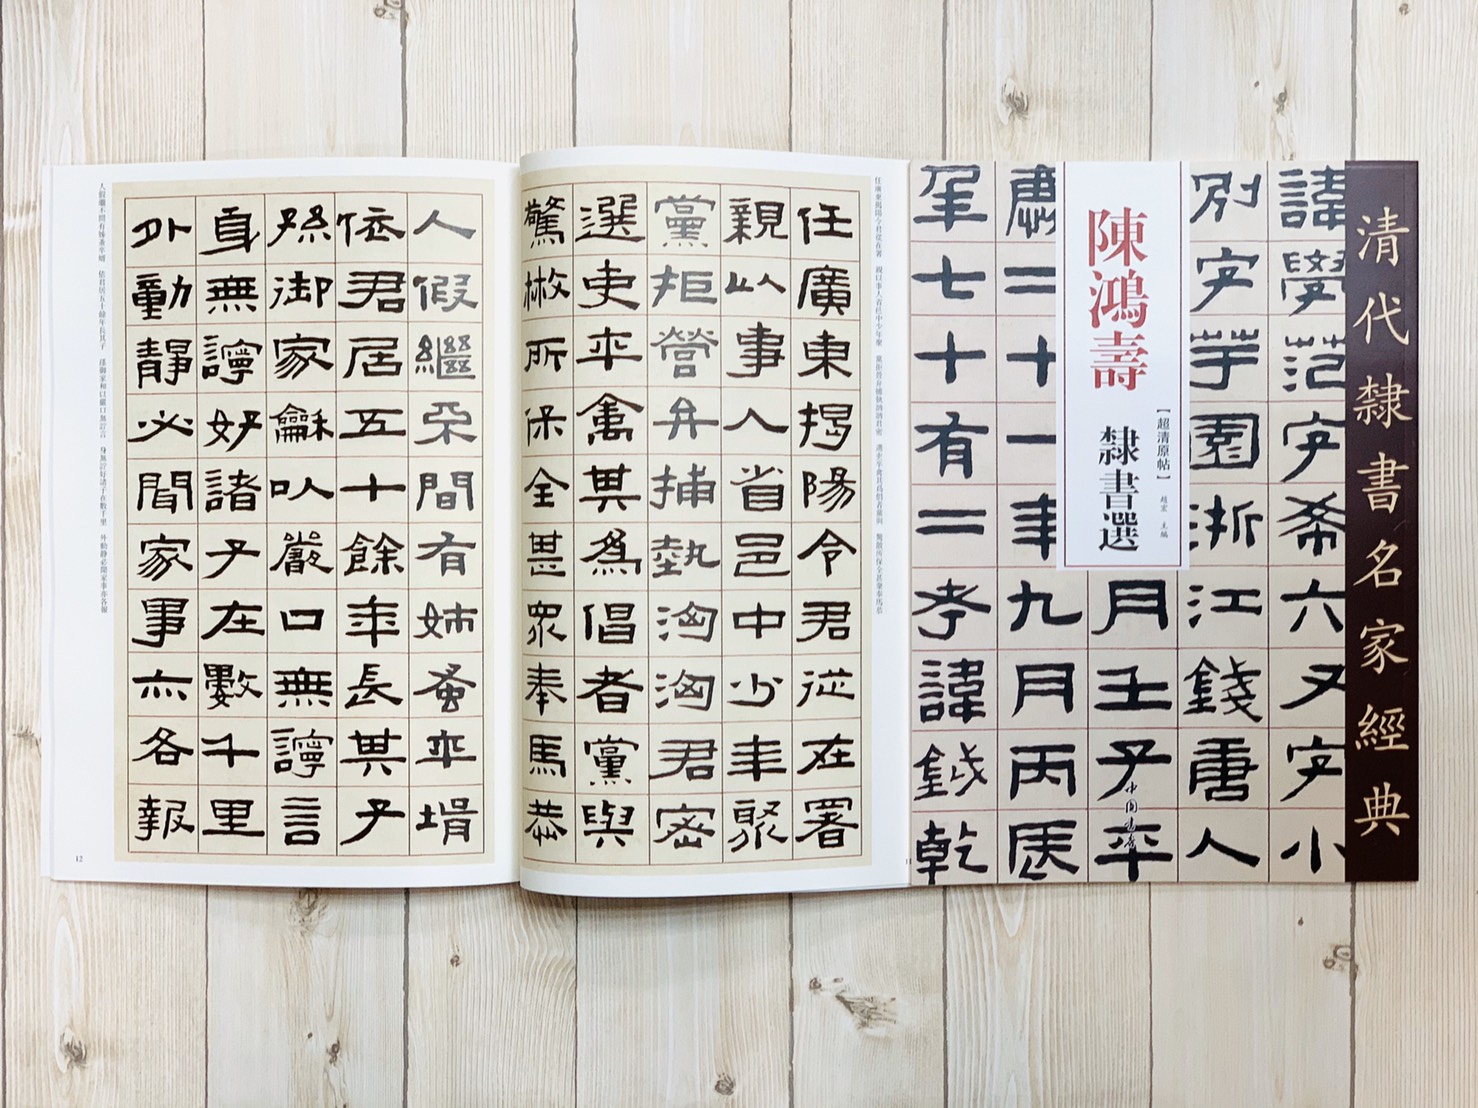 清代隸書名家經典
陳鴻壽
隸書選
【超清原帖】
趙宏 主編
中國書店
諱學范字希六又字小
別字芋園浙江錢唐人
月壬子卒
肅二十一年九月丙医
年七十有二孝諱鉞乾
任廣東揭陽令君從在署
親以事人省邑中少年聚
黨拒營弁捕執洶洶君密
選吏卒禽其為倡者黨與
驚散所保全甚眾奉馬恭
人假繼不間有姊蚤卒壻
依君居五十餘年長其子
孫御家龢以嚴口無諍言
身無諍好諸子在數千里
外動靜必聞家事亦各報
任廣東揭陽令君從在署 親以事人省邑中少年聚 黨拒營弁捕執洶洶君密 選吏卒禽其為倡者黨與 驚散所保全甚眾奉馬恭
人假繼不間有姊蚤卒壻 依君居五十餘年長其子 孫御家和以嚴口無諍言 身無諍好諸子在數千里 外動靜必聞家事亦各報
12